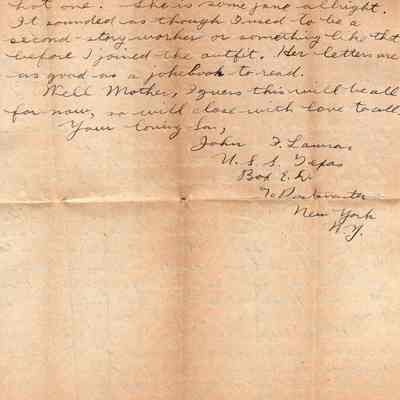 hot one. She is some jane allright.
It sounded as though I used to be a
second-story worker or something like that
before I joined the outfit. Her letters are
as good as a jokebook to read.
Well Mother, I guess this will be all
for now, so will close with love to all,
Your loving Son,
John F.
U. S. S. Texas
Box E.D.
℅ Postmaster
New York
N.Y.